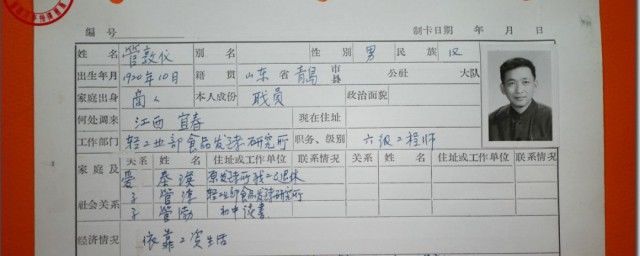 编号 制卡日期 年 月 日
姓名 管敦仪 别名 性别 男 民族 汉
出生年月 1920年10月 籍贯 山东省青岛市县 公社 大队
家庭出身 商人 本人成份 职员 政治面貌
何处调来 江西 宜春 现在住址
工作部门 轻工业部食品发酵研究所 职务、级别 六级工程师
家庭及社会关系 关系 姓名 住址或工作单位 联系情况 关系 姓名 住址或工作单位 联系情况
爱 秦瑛 原发酵所我工退休
子 管津 轻工业部食品发酵研究所
子 管渤 初中读书
经济情况 依靠工资生活